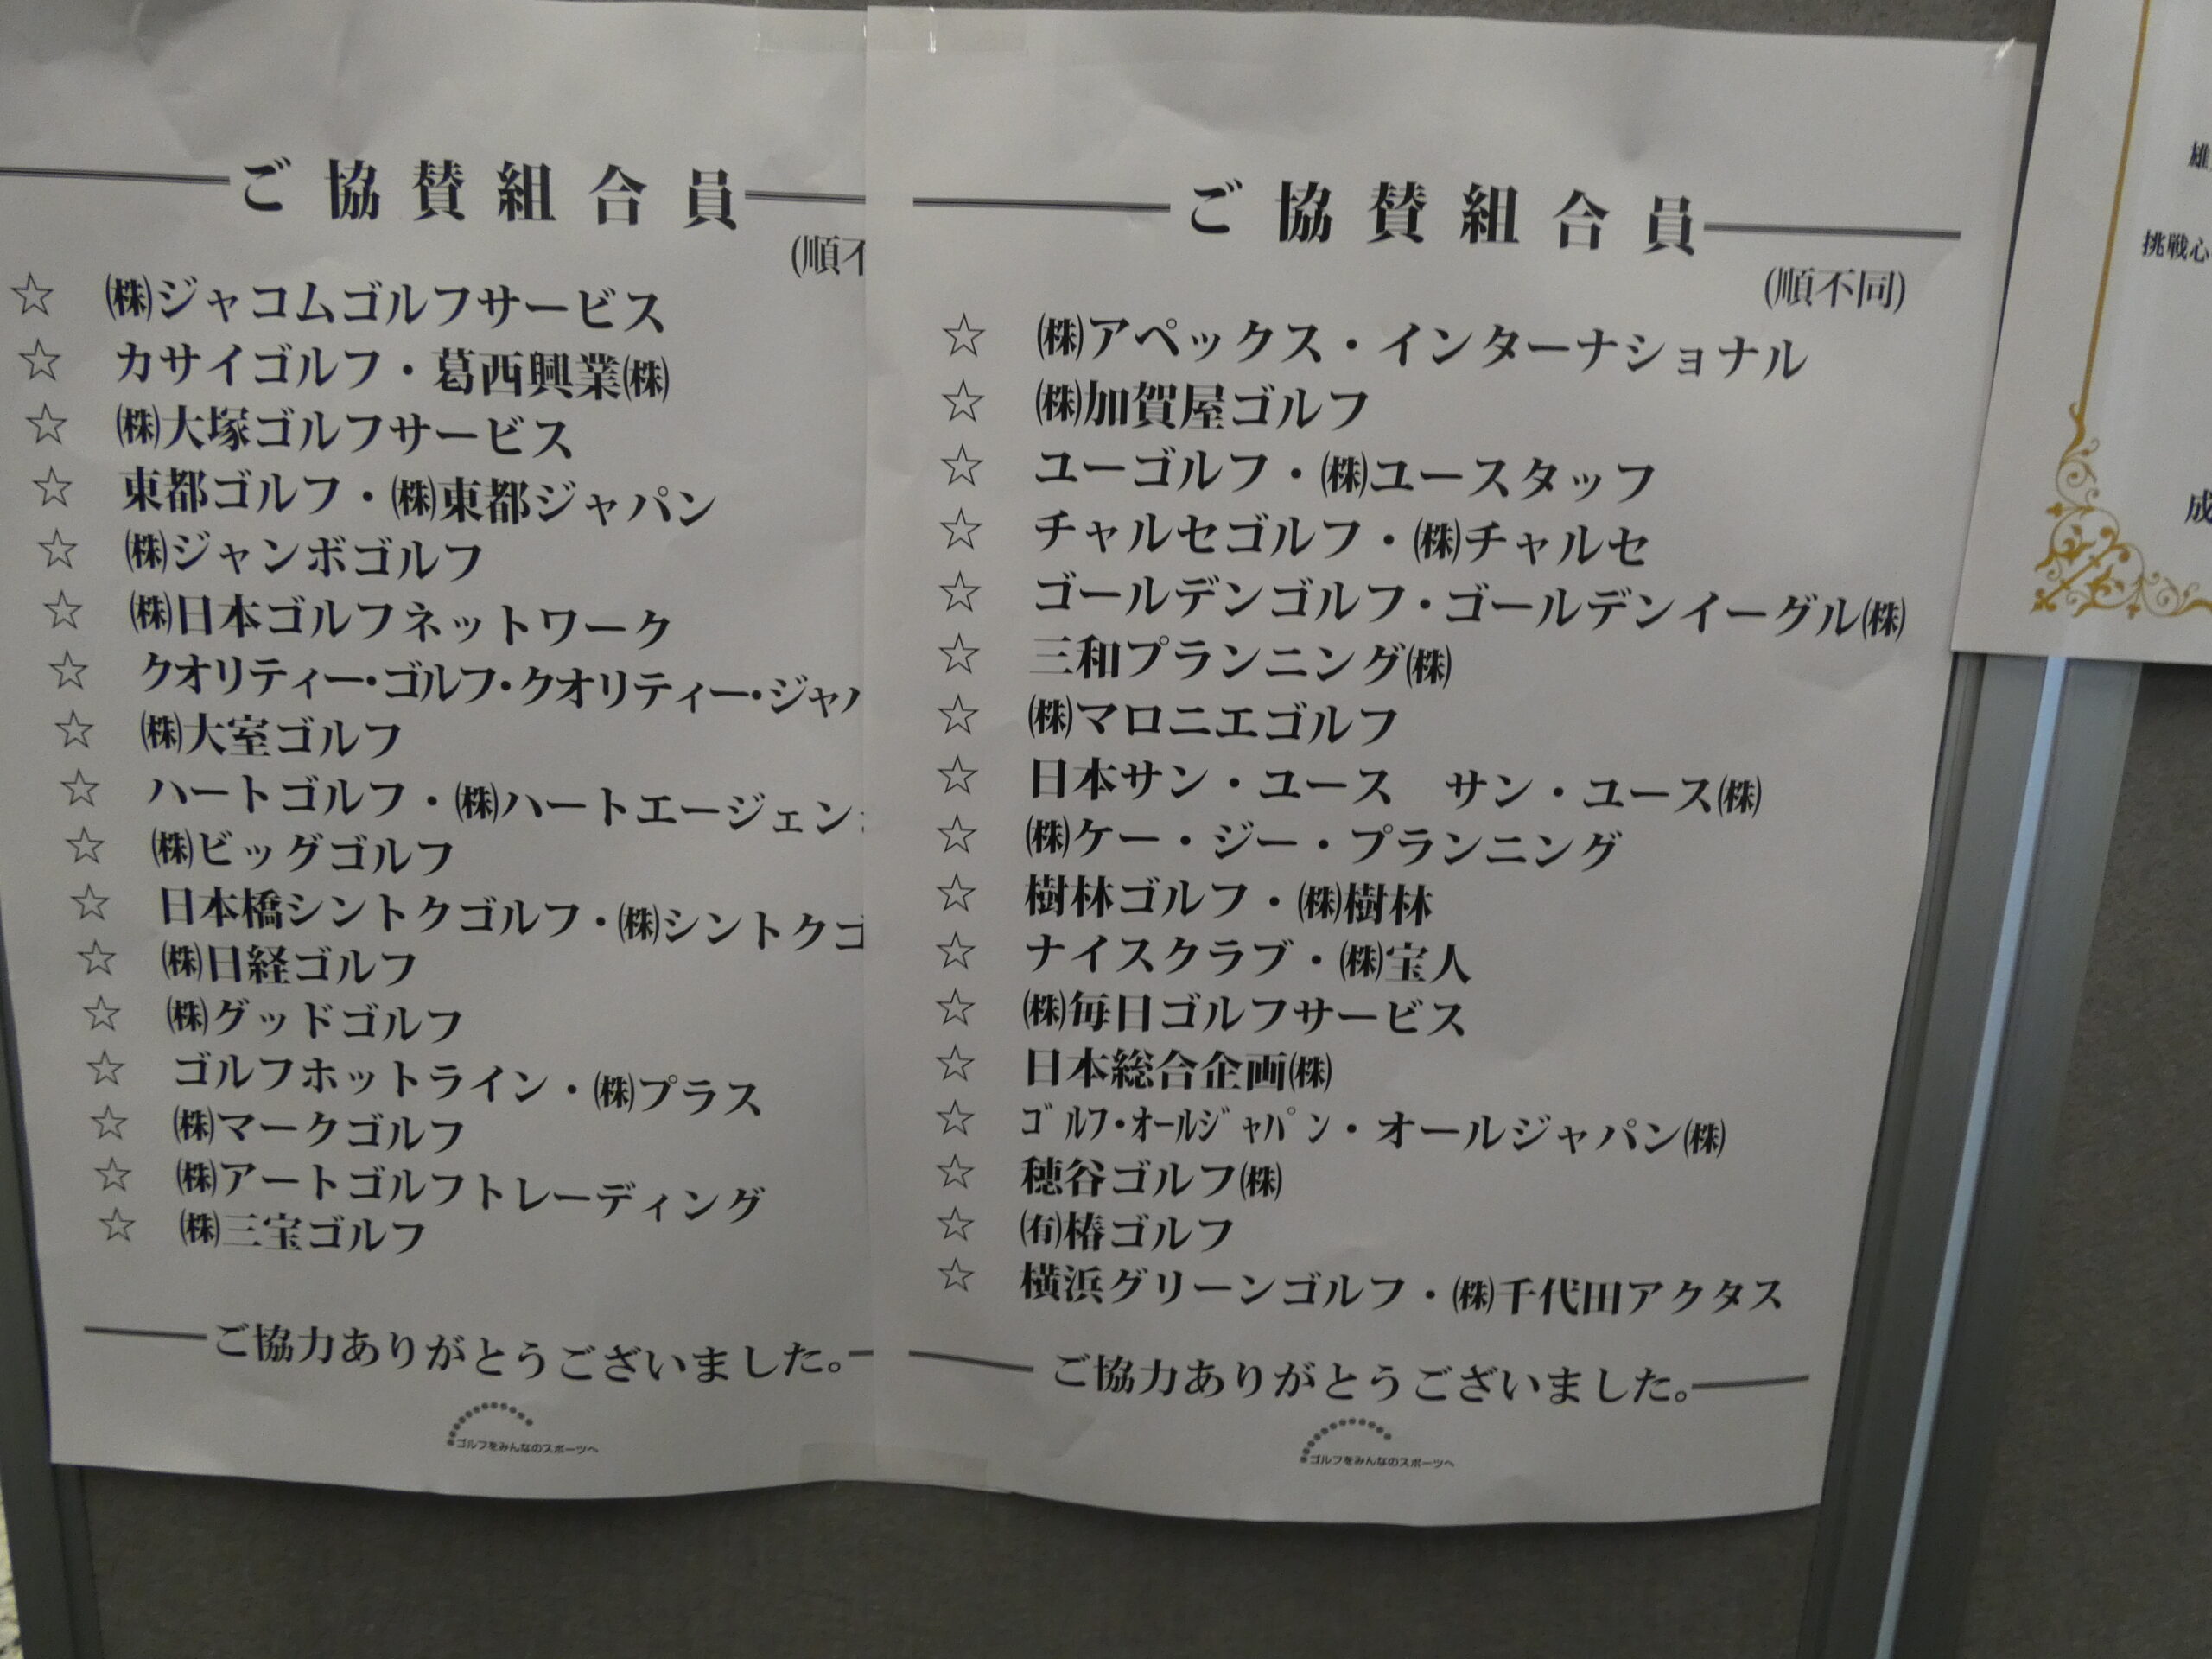 ご協賛組合員
(順不
☆ ㈱ジャコムゴルフサービス
☆ カサイゴルフ・葛西興業㈱
☆ ㈱大塚ゴルフサービス
☆ 東都ゴルフ・㈱東都ジャパン
☆ ㈱ジャンボゴルフ
☆ ㈱日本ゴルフネットワーク
☆ クオリティー・ゴルフ・クオリティー・ジャ
☆ ㈱大室ゴルフ
☆ ハートゴルフ・㈱ハートエージェン
☆ ㈱ビッグゴルフ
☆ 日本橋シントクゴルフ・㈱シントクゴ
☆ ㈱日経ゴルフ
☆ ㈱グッドゴルフ
☆ ゴルフホットライン・㈱プラス
☆ ㈱マークゴルフ
☆ ㈱アートゴルフトレーディング
☆ ㈱三宝ゴルフ
ご協力ありがとうございました。
ゴルフをみんなのスポーツへ
ご協賛組合員
(順不同)
☆ ㈱アペックス・インターナショナル
☆ ㈱加賀屋ゴルフ
☆ ユーゴルフ・㈱ユースタッフ
☆ チャルセゴルフ・㈱チャルセ
☆ ゴールデンゴルフ・ゴールデンイーグル㈱
☆ 三和プランニング㈱
☆ ㈱マロニエゴルフ
☆ 日本サン・ユース　サン・ユース㈱
☆ ㈱ケー・ジー・プランニング
☆ 樹林ゴルフ・㈱樹林
☆ ナイスクラブ・㈱宝人
☆ ㈱毎日ゴルフサービス
☆ 日本総合企画㈱
☆ ｺﾞﾙﾌ・ｵｰﾙｼﾞｬﾊﾟﾝ・オールジャパン㈱
☆ 穂谷ゴルフ㈱
☆ ㈲椿ゴルフ
☆ 横浜グリーンゴルフ・㈱千代田アクタス
ご協力ありがとうございました。
ゴルフをみんなのスポーツへ
雄
挑戦心
成